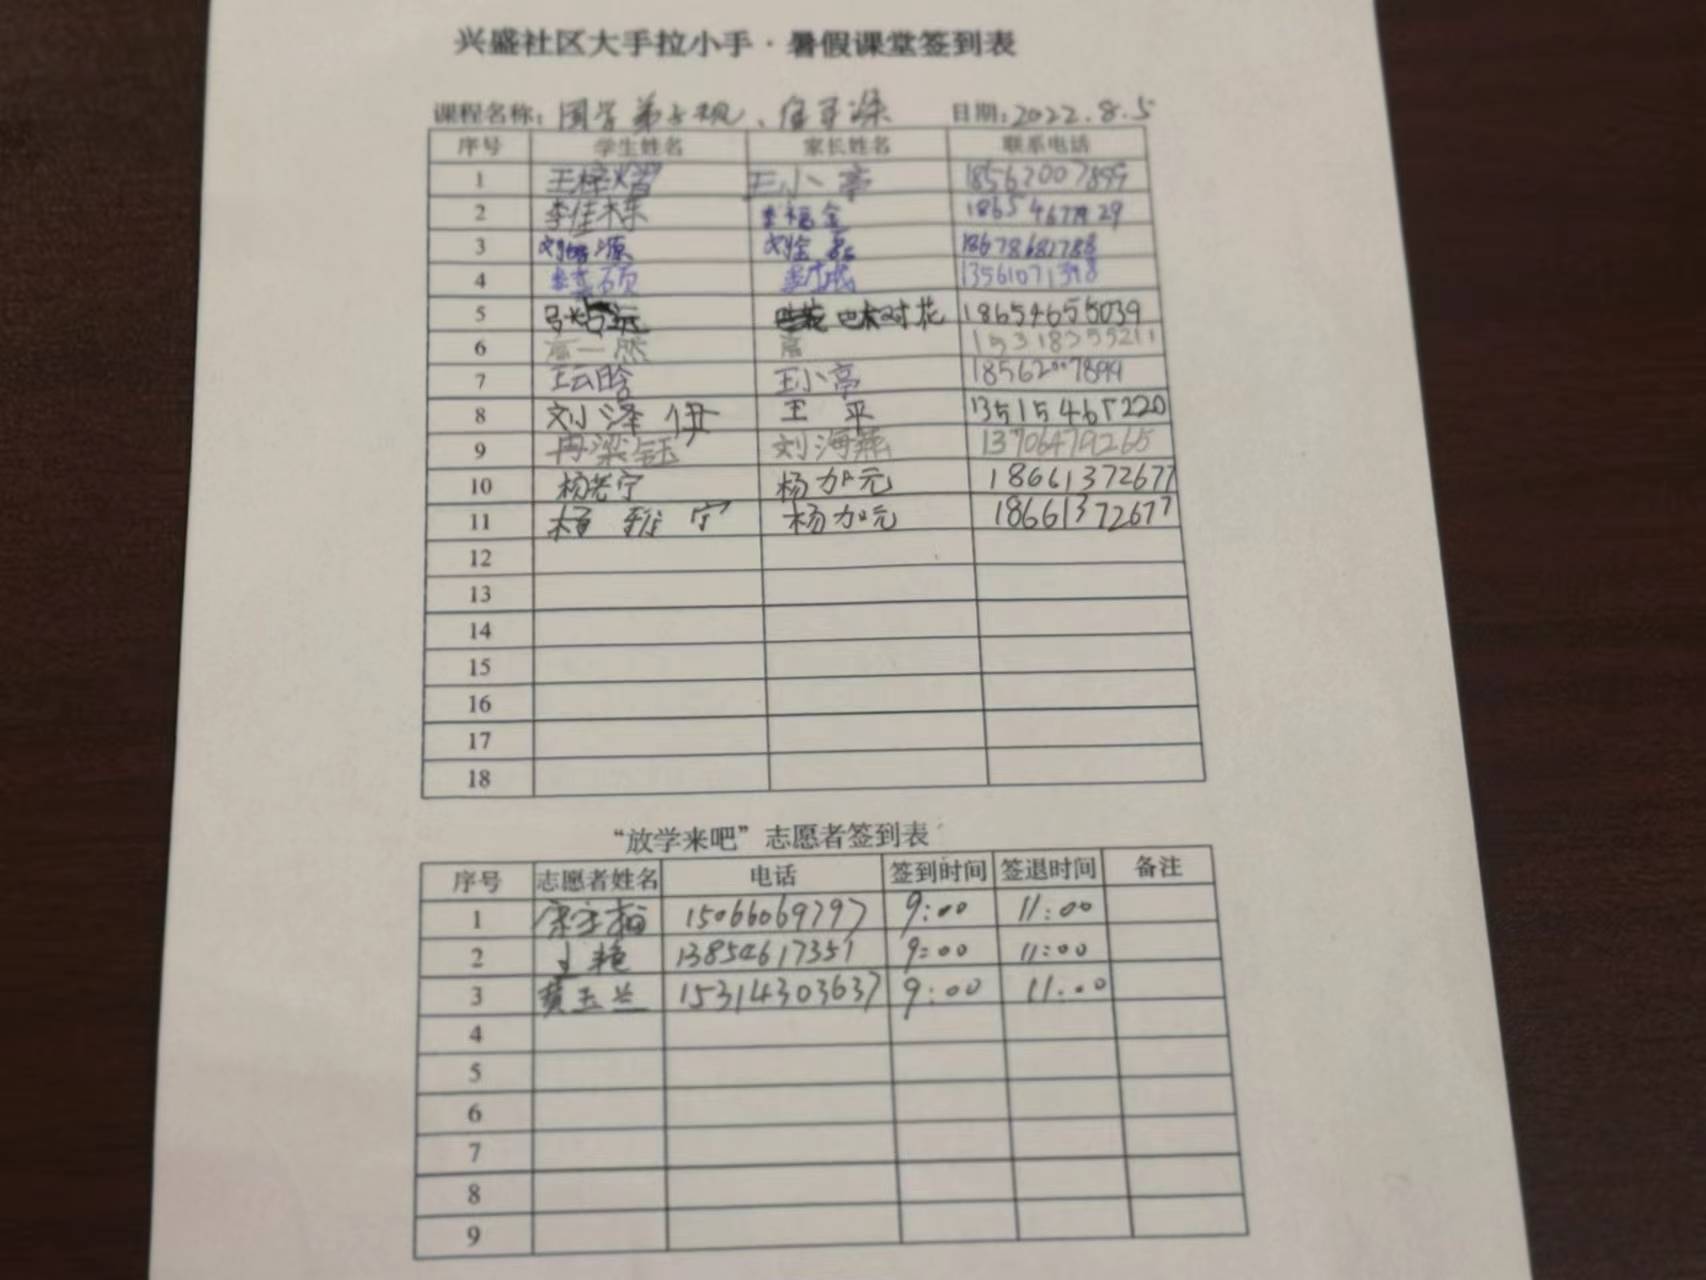 兴盛社区大手拉小手·暑假课堂签到表
课程名称: 国学弟子规、 日期:2022.8.5
序号 学生姓名 家长姓名 联系电话
1 王 王小亭 18562007899
2 李佳栋 李福金
3 刘 源 刘 18678681788
4 硕 13561071398
5 远 花 18654655039
6 高一然 高 15318355211
7 王云晗 王小亭 18562007899
8 刘泽伊 王平 13515465220
9 冉梁钰 刘海燕 13706479265
10 杨 宁 杨加元 18661372677
11 杨雅宁 杨加元 18661372677
12
13
14
15
16
17
18
“放学来吧”志愿者签到表
序号 志愿者姓名 电话 签到时间 签退时间 备注
1 15066069797 9:00 11:00
2 王艳 13854617351 9:00 11:00
3 黄玉兰 15314303637 9:00 11:00
4
5
6
7
8
9